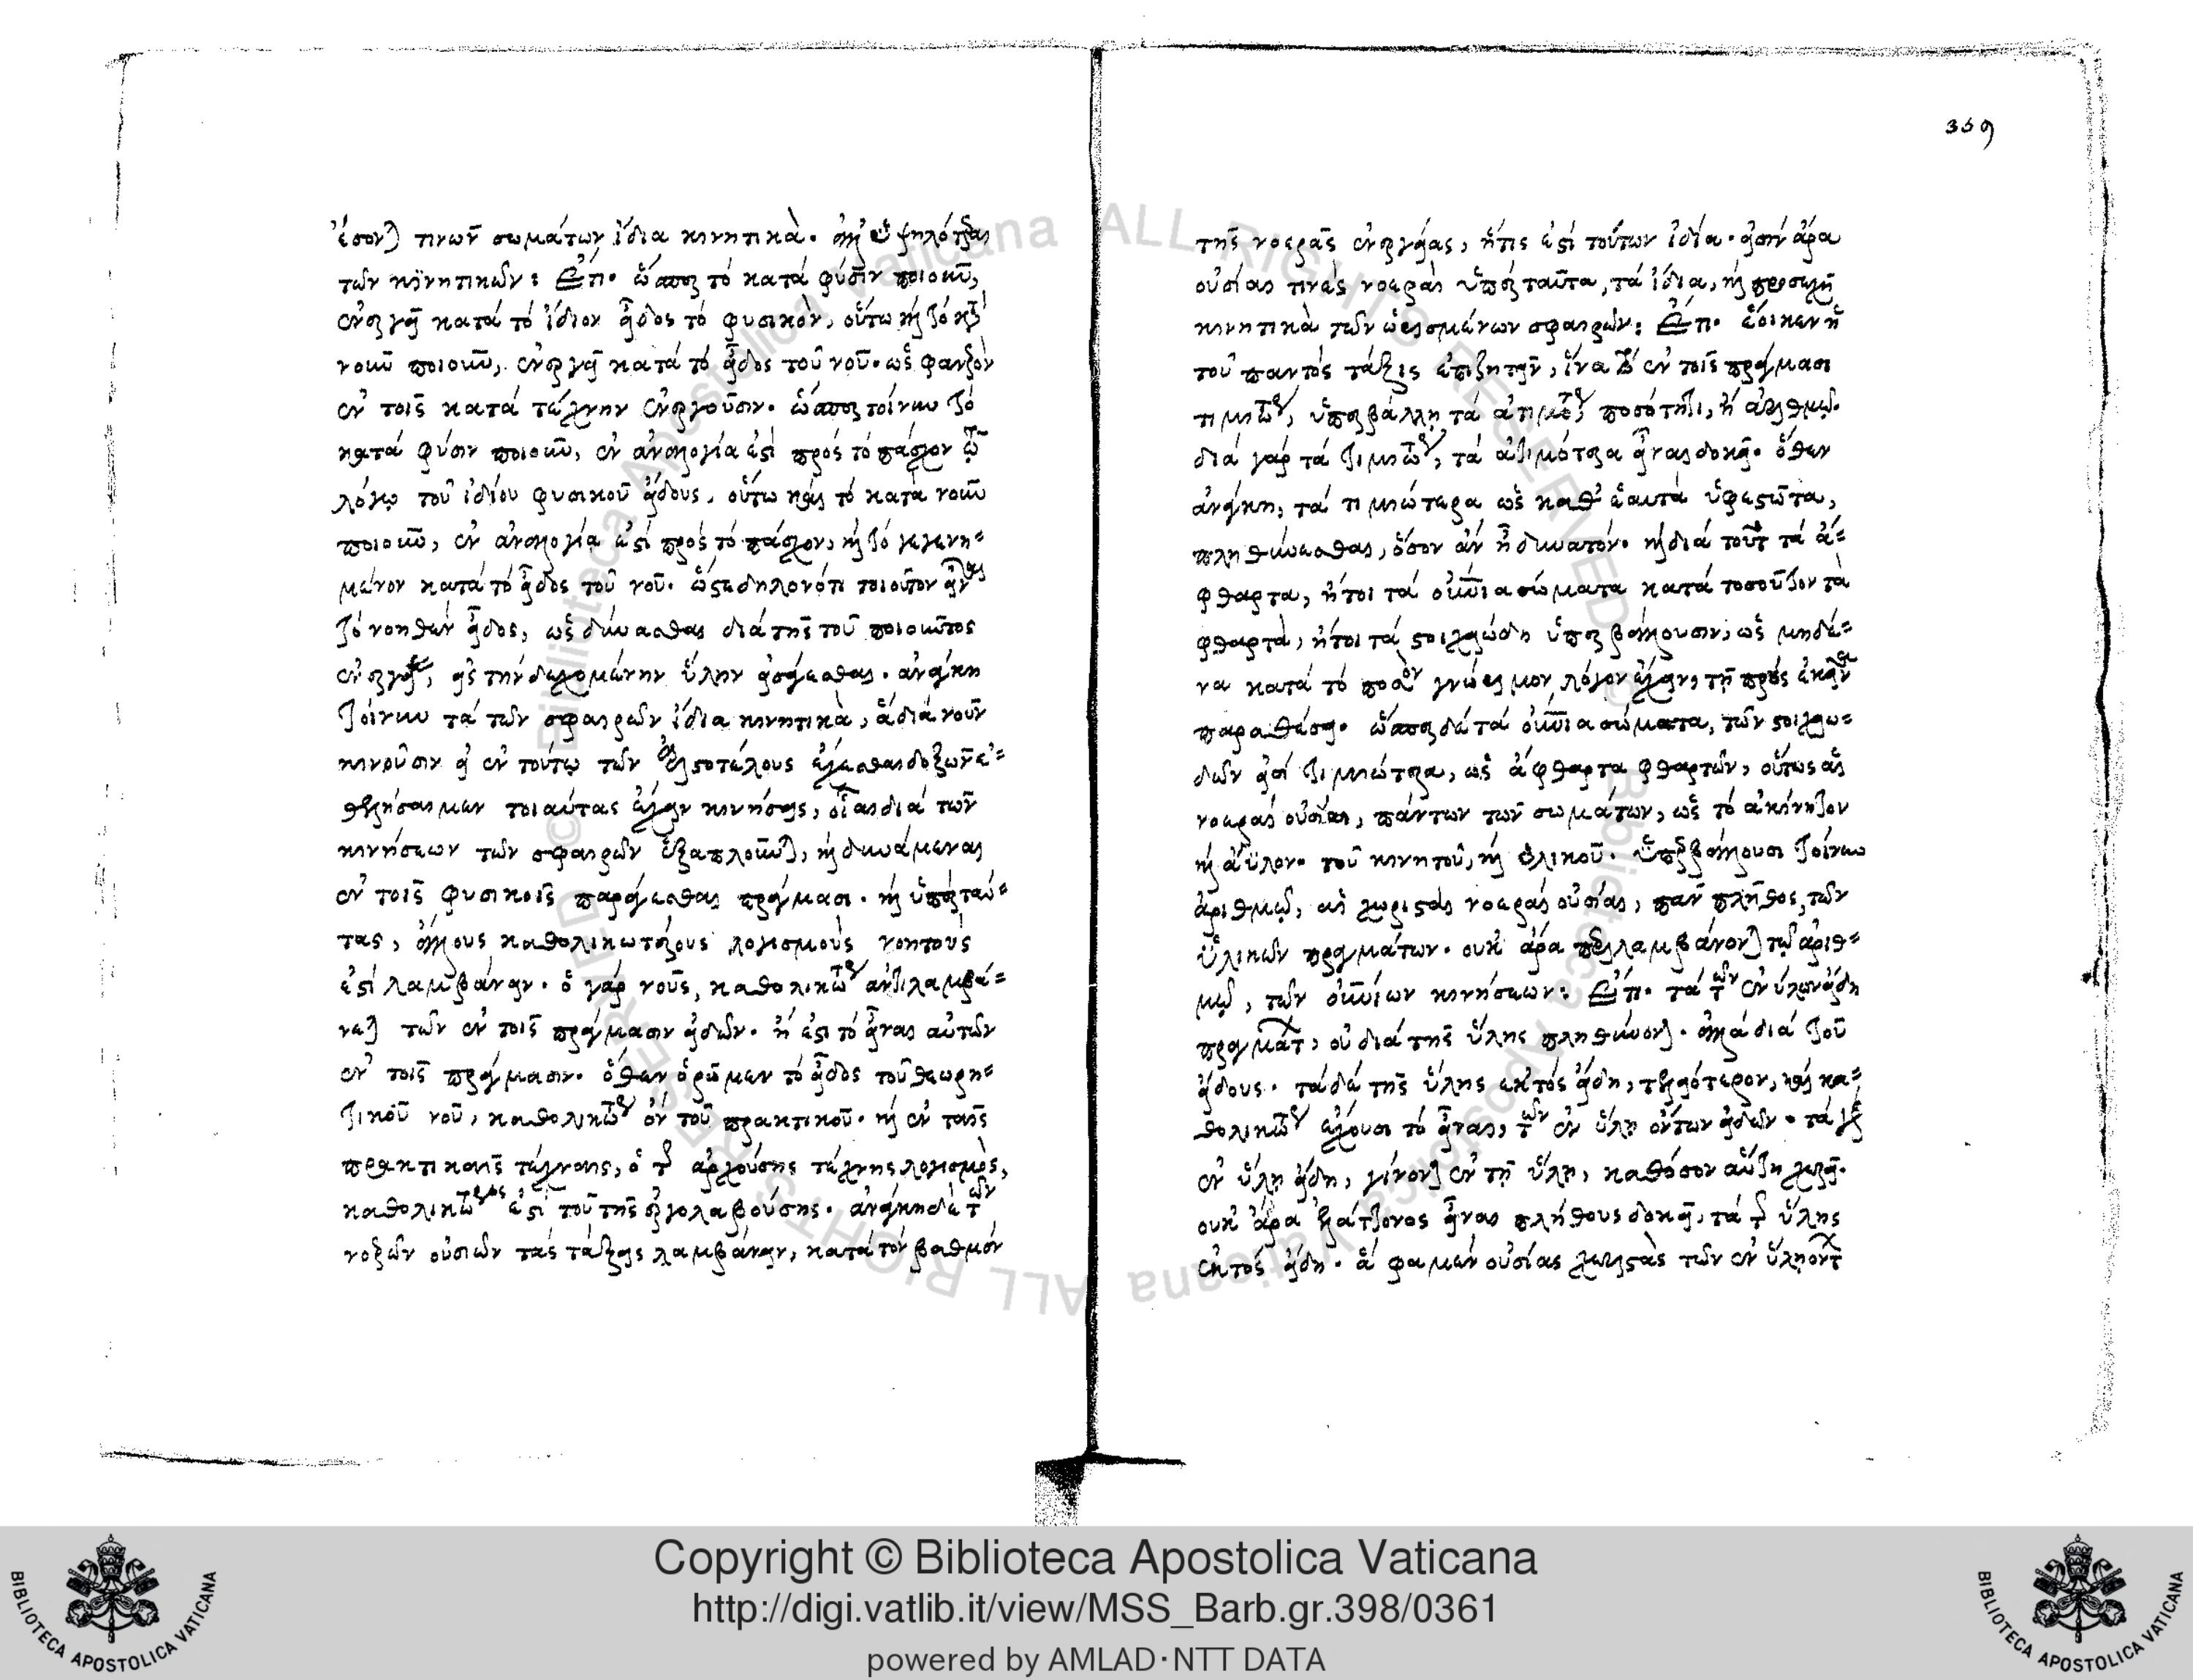 ἔσονται τινῶν σωμάτων ἴδια κινητικὰ.
τῶν κινητικῶν: ὥσπερ τὸ κατὰ φύσιν ποιοῦν,
ἐνεργεῖ κατὰ τὸ ἴδιον εἶδος τὸ φυσικὸν, οὕτω καὶ τὸ κατὰ
νοῦν ποιοῦν, ἐνεργεῖ κατὰ τὸ εἶδος τοῦ νοῦ. ὡς φανερὸν
ἐν τοῖς κατὰ τέχνην ἐνεργοῦσιν. ὥσπερ τοίνυν τὸ
κατὰ φύσιν ποιοῦν, ἐν ἀναλογία ἐστὶ πρὸς τὸ πάσχον
λόγω τοῦ ἰδίου φυσικοῦ εἴδους. οὕτω καὶ τὸ κατὰ νοῦν
ποιοῦν, ἐν ἀναλογία ἐστὶ πρὸς τὸ πάσχον, καὶ τὸ γεγενη=
μένον κατὰ τὸ εἶδος τοῦ νοῦ. ὥστε δηλονότι τοιοῦτον εἶναι
τὸ νοηθὲν εἶδος, ὡς δύνασθαι διὰ τῆς τοῦ ποιοῦντος
εἰς τὴν δεχομένην ὕλην εἰσάγεσθαι. ἀνάγκη
τοίνυν τὰ τῶν σφαιρῶν ἴδια κινητικὰ, ἃ διὰ νοῦν
κινοῦσιν εἰ ἐν τούτω τῶν Ἀριστοτέλους ἔχεσθαι δοξῶν ἐ=
θελήσαιμεν τοιαύτας ἔχειν κινήσεις, οἷαι διὰ τῶν
κινήσεων τῶν σφαιρῶν ἐξαπλοῦνται, καὶ δυνάμεναι
ἐν τοῖς φυσικοῖς παράγεσθαι πράγμασι. καὶ ὑπὲρ ταύ=
τας, ἄλλους καθολικωτέρους λογισμοὺς νοητοὺς
ἐστὶ λαμβάνειν. ὁ γὰρ νοῦς, καθολικώτερον ἀντιλαμβά=
νεται τῶν ἐν τοῖς πράγμασιν εἰδῶν. ἢ ἐστι τὸ εἶναι αὐτῶν
ἐν τοῖς πράγμασιν. ὅθεν ὁρῶμεν τὸ εἶδος τοῦ θεωρη=
τικοῦ νοῦ, καθολικώτερον ὂν τοῦ πρακτικοῦ. καὶ ἐν ταῖς
πρακτικαῖς τέχναις, ὁ τῆς ἀρχούσης τέχνης λογισμὸς,
καθολικώτερος ἐστὶ τοῦ τῆς ἐργολαβούσης. ἀνάγκη δὲ τῶν
νοερῶν οὐσιῶν τὰς τάξεις λαμβάνειν, κατὰ τὸν βαθμὸν
359
τῆς νοερᾶς ἐνεργείας, ἥτις ἐστὶ τούτων ἰδία. εἰσὶν ἄρα
οὐσίαι τινὲς νοεραὶ ὑπὲρ ταῦτα, τὰ ἴδια, καὶ προσεχῆ
κινητικὰ τῶν ὡρισμένων σφαιρῶν: ἔοικεν ἡ
τοῦ παντὸς τάξις ἐπιζητεῖν, ἵνα τὰ ἐν τοῖς πράγμασι
τιμιώτερα, ὑπερβάλλη τὰ ἀτιμότερα ποσότητι, ἢ ἀριθμῷ.
διὰ γὰρ τὰ τιμιώτερα, τὰ ἀτιμότερα εἶναι δοκεῖ. ὅθεν
ἀνάγκη, τὰ τιμιώτερα ὡς καθ' ἑαυτὰ ὑφεστῶτα,
πληθύνεσθαι, ὅσον ἂν ᾖ δυνατόν. καὶ διὰ τοῦτο τὰ ἄ=
φθαρτα, ἤτοι τὰ οὐράνια σώματα κατὰ τοσοῦτον τὰ
φθαρτὰ, ἤτοι τὰ στοιχειώδη ὑπερβάλλουσιν, ὡς μηδέ=
να κατὰ τὸ ποσὸν γνώριμον λόγον ἔχειν, τῇ πρὸς ἐκεῖνα
παραθέσει. ὥσπερ δὲ τὰ οὐράνια σώματα, τῶν στοιχειω=
δῶν εἰσὶ τιμιώτερα, ὡς ἄφθαρτα φθαρτῶν, οὕτως αἱ
νοεραὶ οὐσίαι, πάντων τῶν σωμάτων, ὡς τὸ ἀκίνητον
καὶ ἄϋλον. τοῦ κινητοῦ, καὶ ὑλικοῦ. ὑπερβάλλουσι τοίνυν
ἀριθμῷ, αἱ χωρισταὶ νοεραὶ οὐσίαι, πᾶν πλῆθος, τῶν
ὑλικῶν πραγμάτων. οὐκ ἄρα περιλαμβάνονται τῷ ἀριθ=
μῷ, τῶν οὐρανίων κινήσεων: τὰ τῶν ἐν ὕλη εἴδη
πραγμάτων, οὐ διὰ τῆς ὕλης πληθύνονται. ἀλλὰ διὰ τοῦ
εἴδους. τὰ δὲ τῆς ὕλης ἐκτὸς εἴδη, τελειότερον, καὶ κα=
θολικώτερον ἔχουσι τὸ εἶναι, τῶν ἐν ὕλη ὄντων εἰδῶν. τὰ γὰρ
ἐν ὕλη εἴδη, γίνονται ἐν τῇ ὕλη, καθόσον αὕτη χωρεῖ.
οὐκ ἄρα ἐλάττονος εἶναι πλήθους δοκεῖ, τὰ τῆς ὕλης
ἐκτὸς εἴδη. ἅ φαμεν οὐσίας χωριστὰς τῶν ἐν ὕλη ὄντων
Copyright © Biblioteca Apostolica Vaticana
http://digi.vatlib.it/view/MSS_Barb.gr.398/0361
powered by AMLAD·NTT DATA